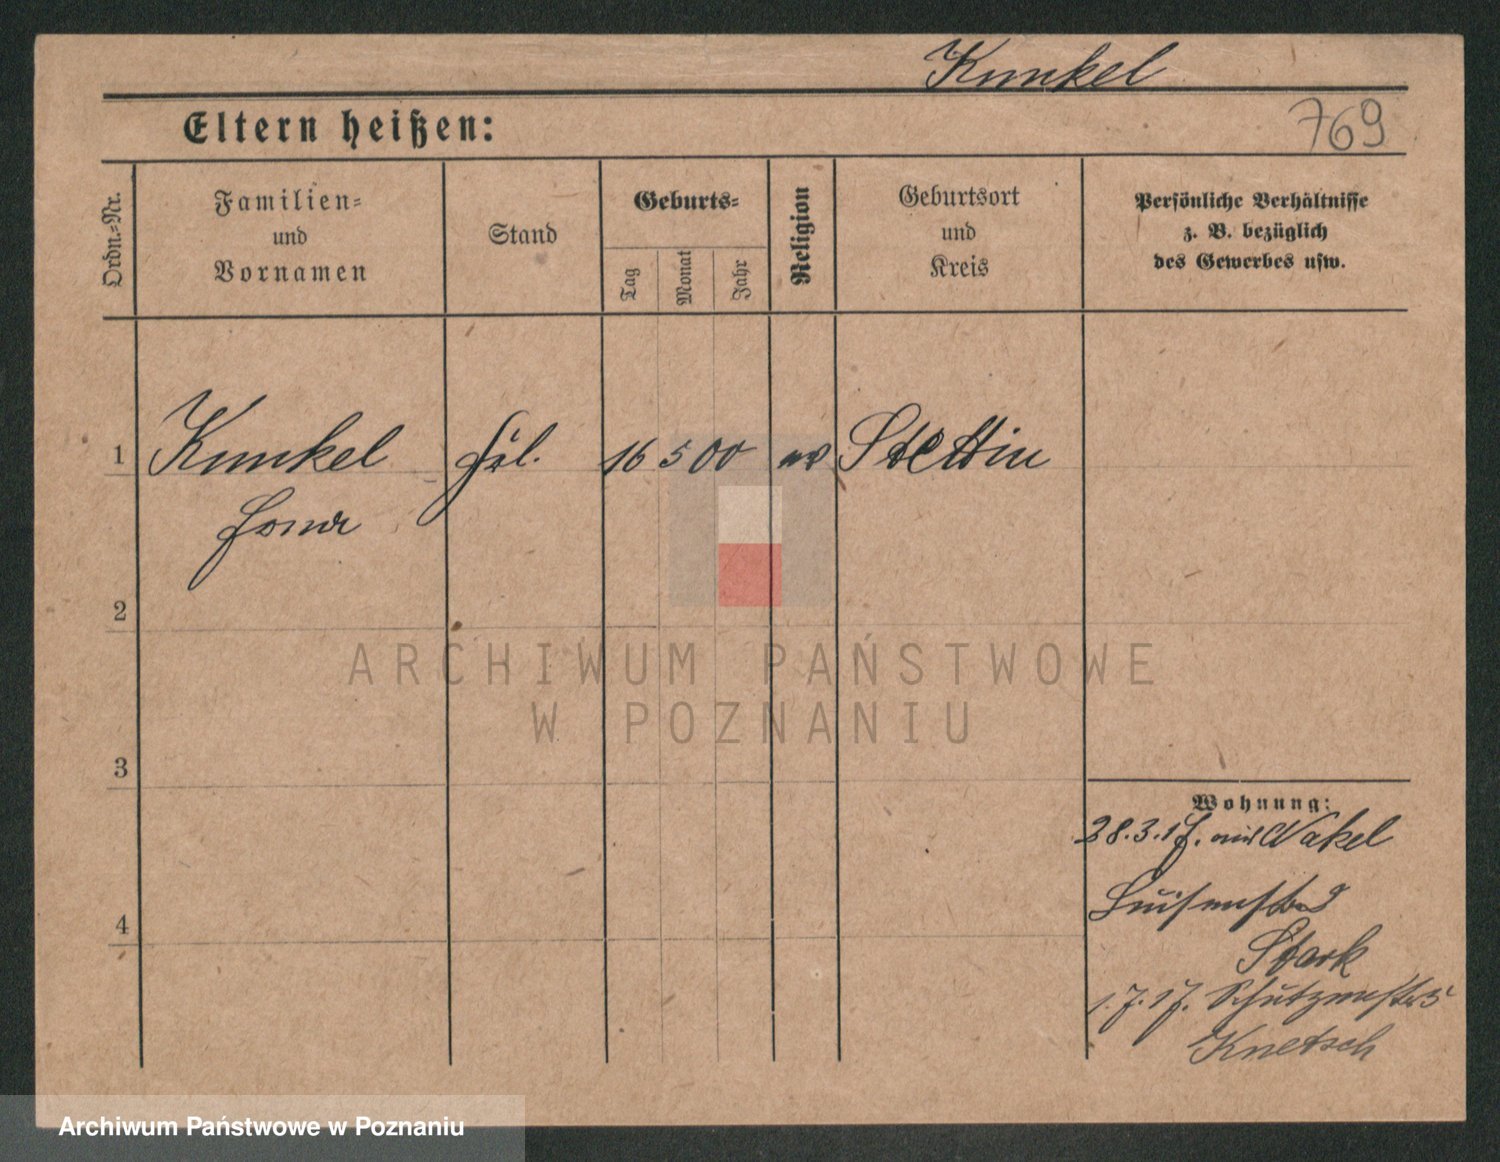 Kunkel
Eltern heißen:
769
Ordn.-Nr.
Familien-
und
Vornamen
Stand
Geburts-
Tag
Monat
Jahr
Religion
Geburtsort
und
Kreis
Persönliche Verhältnisse
z. B. bezüglich
des Gewerbes usw.
1 Kunkel Frl. 16 5 00 ev Stettin
2
3
4
Wohnung:
28.3.17. Nakel
Luisenstr 9
Stark
1.7.17.
Knetsch
ARCHIWUM PAŃSTWOWE
W POZNANIU
Archiwum Państwowe w Poznaniu